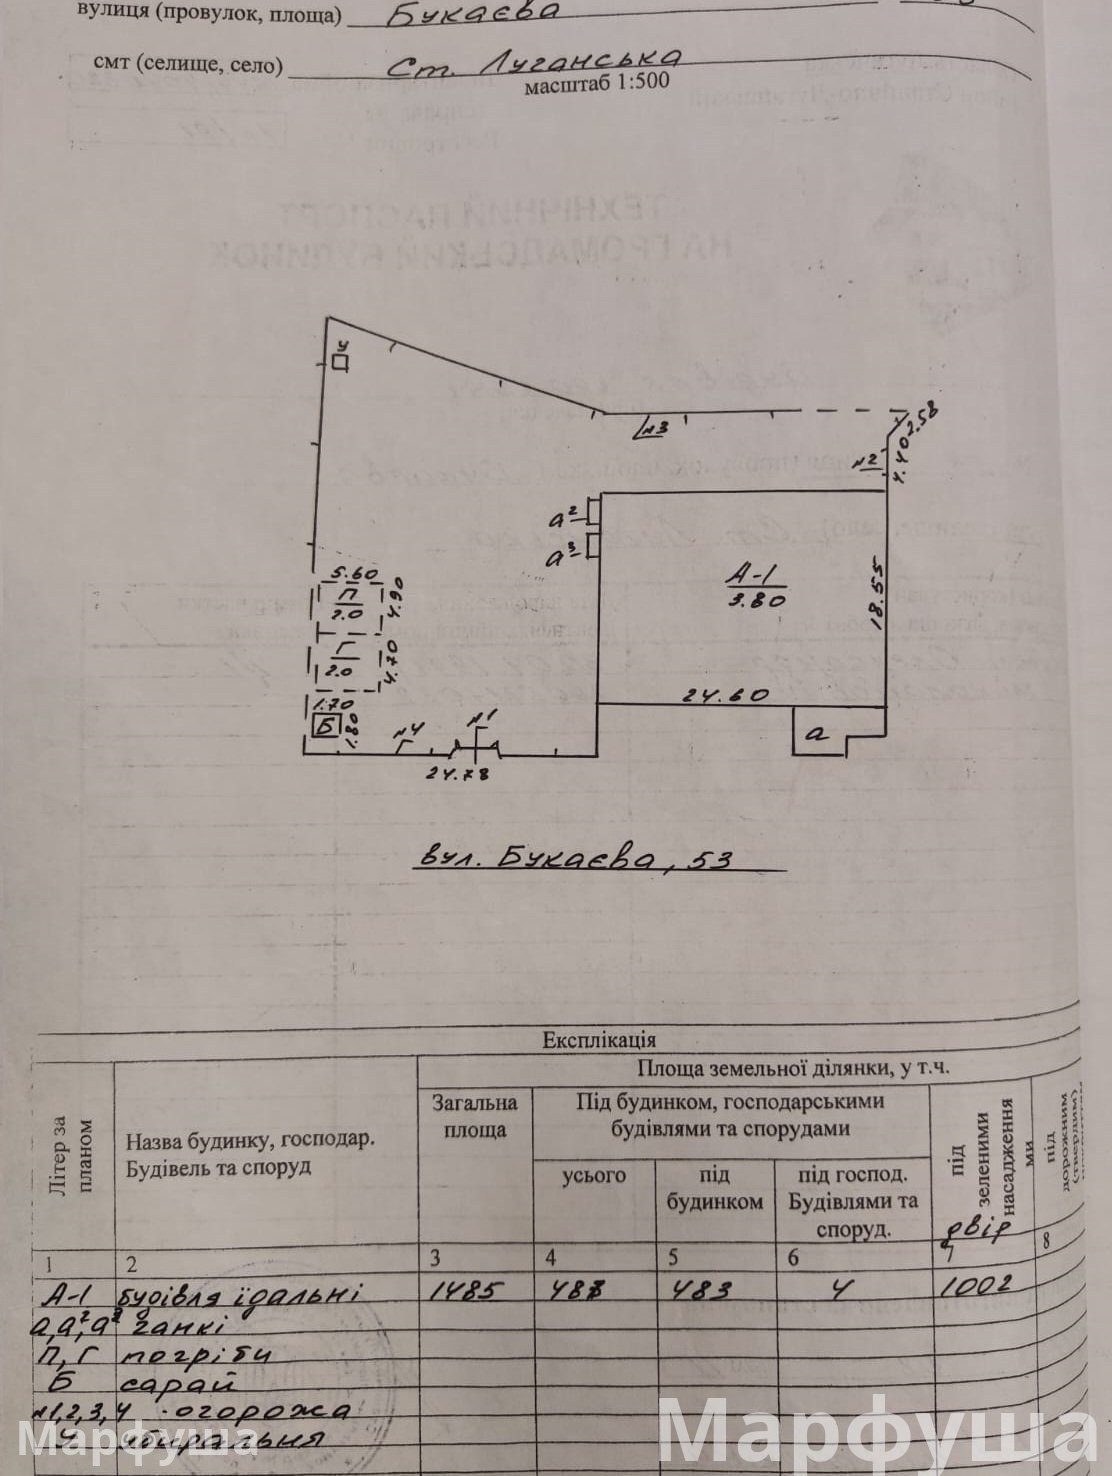 вулиця (провулок, площа) Букаєва
смт (селище, село) Ст. Луганська
масштаб 1:500
ТЕХНІЧНИЙ ПАСПОРТ
НА ГРОМАДСЬКИЙ БУДИНОК
У
№3
2.58
4.40
№2
а²
а³
А-1
3.80
18.55
5.60
П
2.0
4.90
Г
2.0
4.70
1.70
Б
1.80
№4
№1
24.78
24.60
а
вул. Букаєва, 53
Експлікація
Літер за планом
Назва будинку, господар. Будівель та споруд
Площа земельної ділянки, у т.ч.
Загальна площа
Під будинком, господарськими будівлями та спорудами
усього
під будинком
під господ. Будівлями та споруд.
під зеленими насадження ми
двір
під дорожним (твердим)
1 2 3 4 5 6 7 8
А-1 будівля їдальні 1485 487 483 4 1002
а, а², а³ ганкі
П, Г погріби
Б сарай
№1,2,3,4 огорожа
У убиральня
Марфуша
Марфуша